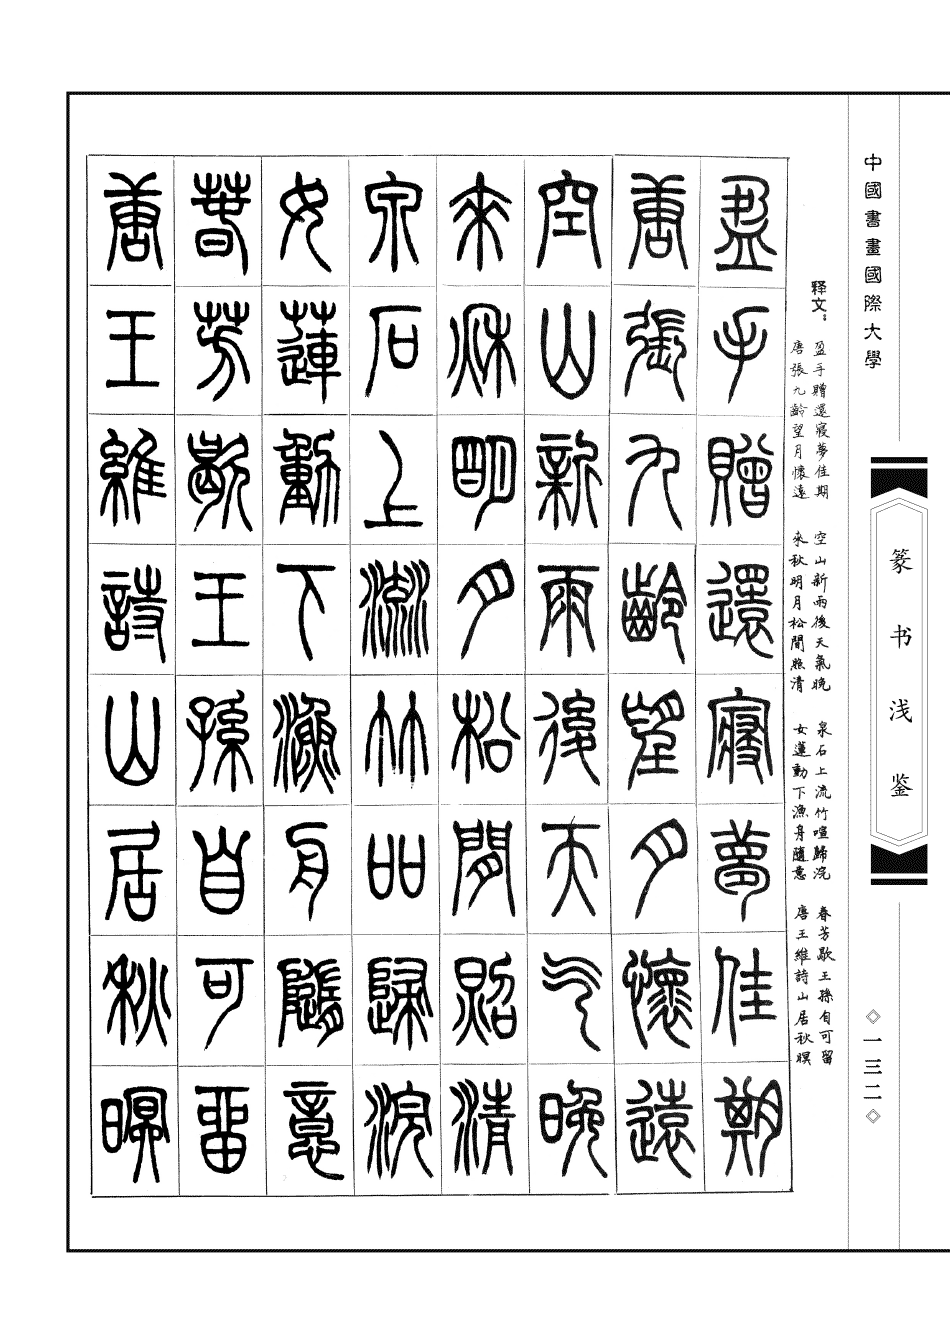 中國書畫國際大學
篆书浅鉴
一三二
释文：
盈手贈還寢夢佳期
唐張九齡望月懷遠
空山新雨後天氣晚
來秋明月松間照清
泉石上流竹喧歸浣
女蓮動下漁舟隨意
春芳歇王孫自可留
唐王維詩山居秋暝
盈手贈還寢夢佳期
唐張九齡望月懷遠
空山新雨後天气晚
來秋明月松間照清
泉石上流竹吅歸浣
女蓮動下漁舟隨意
春芳歇王孫自可留
唐王維詩山居秋暝